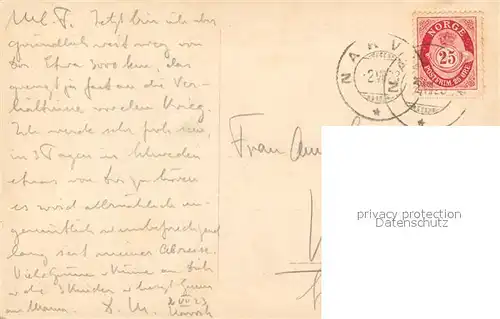 M. l. F. Jetzt bin ich aber
gründlich weit weg von
Dir. Etwa 3000 km, das
grenzt ja fast an die Ver-
hältnisse vor dem Krieg.
Ich werde sehr froh sein,
in 3 Tagen in Schweden
etwas von Dir zu hören
es wird allmählich un-
gemütlich u. unbefriedigend
lang seit meiner Abreise.
Viele Grüsse u Küsse an Dich
u die 3 Kinder u herzl. Gruss
an Mama. D. M.
2 VII 23
Narvik
Frau
NARVIK
2 VII 23
NORGE
25
POSTFRIM. 25 ØRE
privacy protection
Datenschutz